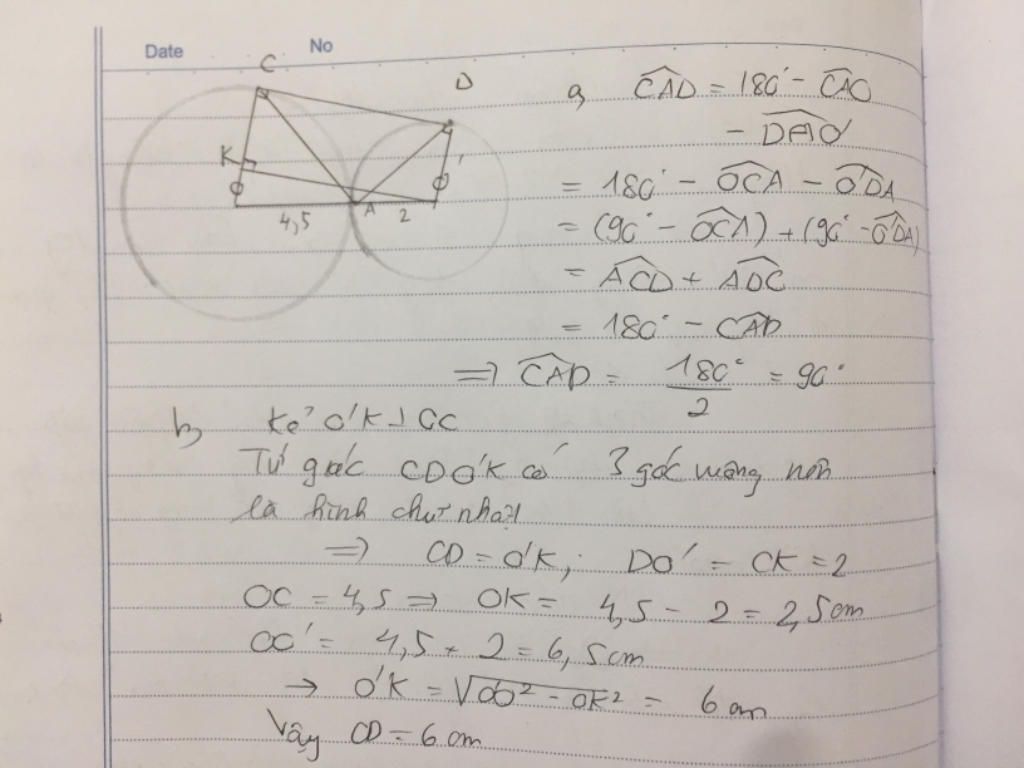 Date No
C
D
K
O
O'
4,5 A 2
a, CAD = 180° - CAO
- DAO'
= 180° - OCA - O'DA
= (90° - OCA) + (90° - O'DA)
= ACD + ADC
= 180° - CAD
=> CAD = 180°/2 = 90°
b, Kẻ O'K ⊥ OC
Tứ giác CDO'K có 3 góc vuông nên
là hình chữ nhật
=> CD = O'K; DO' = CK = 2
OC = 4,5 => OK = 4,5 - 2 = 2,5cm
OO' = 4,5 + 2 = 6,5cm
→ O'K = √OO'² - OK² = 6cm
Vậy CD = 6cm